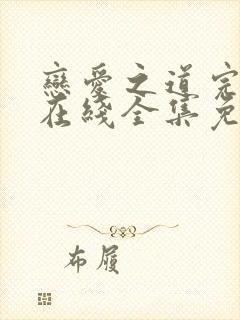 戀愛之道完
在綫全集免
布履